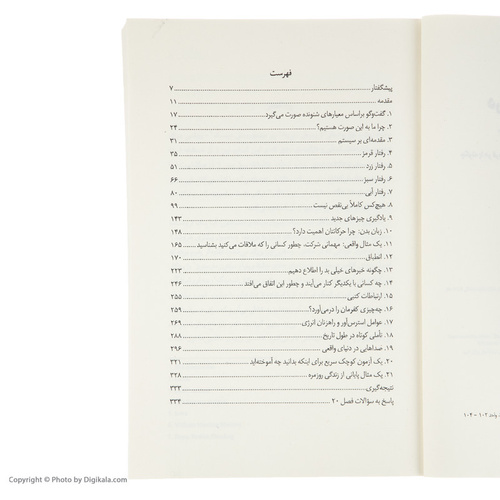 فهرست
پیشگفتار ........ ۷
مقدمه ........ ۱۱
۱. گفت‌وگو براساس معیارهای شنونده صورت می‌گیرد ........ ۱۷
۲. چرا ما به این صورت هستیم؟ ........ ۲۴
۳. مقدمه‌ای بر سیستم ........ ۳۱
۴. رفتار قرمز ........ ۳۵
۵. رفتار زرد ........ ۵۱
۶. رفتار سبز ........ ۶۶
۷. رفتار آبی ........ ۸۰
۸. هیچ‌کس کاملاً بی‌نقص نیست ........ ۹۹
۹. یادگیری چیزهای جدید ........ ۱۴۳
۱۰. زبان بدن: چرا حرکاتتان اهمیت دارد؟ ........ ۱۴۸
۱۱. یک مثال واقعی: مهمانی شرکت، چطور کسانی را که ملاقات می‌کنید بشناسید ........ ۱۶۵
۱۲. انطباق ........ ۱۷۰
۱۳. چگونه خبرهای خیلی بد را اطلاع دهیم ........ ۲۲۳
۱۴. چه کسانی با یکدیگر کنار می‌آیند و چطور این اتفاق می‌افتد ........ ۲۴۶
۱۵. ارتباطات کتبی ........ ۲۵۵
۱۶. چه‌چیزی کفرمان را درمی‌آورد؟ ........ ۲۵۹
۱۷. عوامل استرس‌آور و راهزنان انرژی ........ ۲۶۹
۱۸. تأملی کوتاه در طول تاریخ ........ ۲۸۸
۱۹. صداهایی در دنیای واقعی ........ ۲۹۶
۲۰. یک آزمون کوچک سریع برای اینکه بدانید چه آموخته‌اید ........ ۳۲۱
۲۱. یک مثال پایانی از زندگی روزمره ........ ۳۲۸
نتیجه‌گیری ........ ۳۳۳
پاسخ به سؤالات فصل ۲۰ ........ ۳۳۴
واحد ۱۰۲ – ۱۰۴
Copyright © Photo by Digikala.com